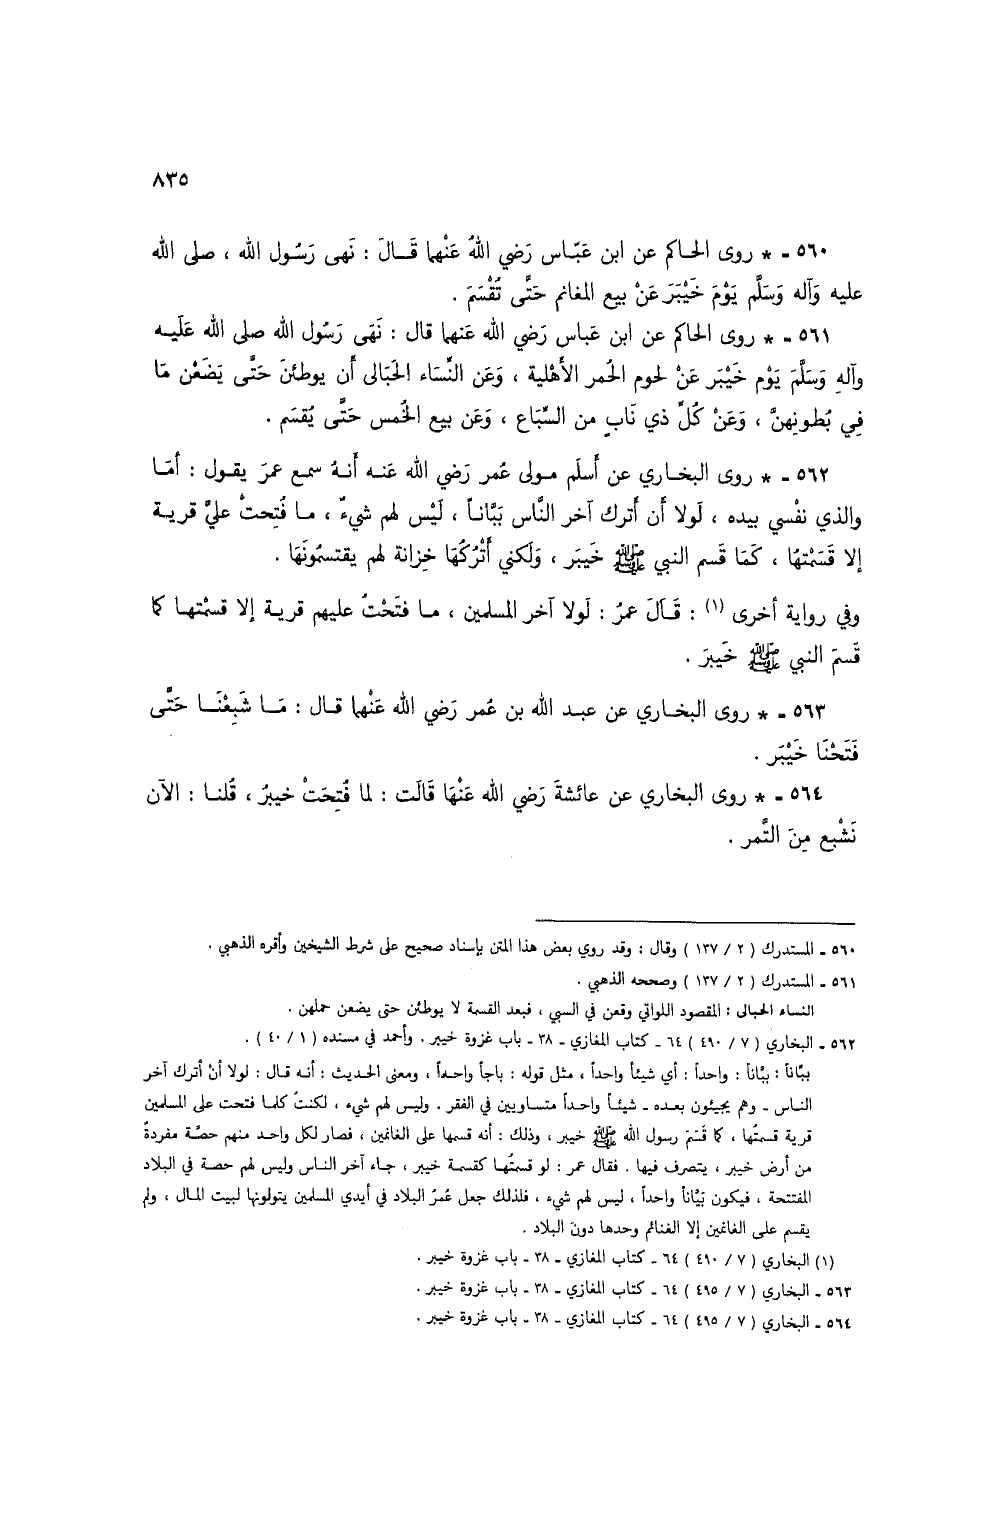 ٨٣٥
٥٦٠ ـ * روى الحاكم عن ابن عَبّاس رَضي اللهُ عَنْهما قَالَ : نَهى رَسُول الله ، صلى الله
عليه وَآله وَسَلَّم يَوْمَ خَيْبَرَ عَنْ بيع المغانم حَتَّى تُقْسَمَ .
٥٦١ ـ * روى الحاكم عن ابن عَباس رَضي الله عَنهما قال : نَهَى رَسُول الله صلى الله عَلَيه
وآلهِ وَسَلَّمَ يَوْم خَيْبَر عَنْ لحوم الحمر الأهْلية ، وَعَن النِّسَاء الحَبَالى أَن يوطئنَ حَتَّى يَضَعْن مَا
فِي بُطونِهنَّ ، وَعَنْ كُلِّ ذي نَابٍ من السِّبَاع ، وَعَن بيع الخُمس حَتَّى يُقسَم .
٥٦٢ ـ * روى البخاري عن أَسلَم مولى عُمر رَضي الله عَنه أَنهُ سمع عمرَ يقول : أمَا
والذي نفْسي بيده ، لَولا أن أَترك آخر النَّاس بَبَّاناً ، لَيْس لهم شيءٌ ، ما فُتِحتْ عليَّ قرية
إلا قَسَمْتهُا ، كَمَا قَسم النبي ﷺ خَيبَر ، وَلكني أَتْرُكُهَا خِزانة لهم يقتسمُونَهَا .
وفي رواية أخرى (١) : قَالَ عمرُ : لَولا آخر المسلمين ، ما فتَحْتُ عليهم قرية إلا قسمْتها كما
قَسمَ النبي ﷺ خَيبرَ .
٥٦٣ ـ * روى البخاري عن عبد الله بن عُمر رَضي الله عَنْهما قال : مَا شَبِعْنَا حَتَّى
فَتَحْنَا خَيْبَر .
٥٦٤ ـ * روى البخاري عن عائشةَ رَضي الله عَنْهَا قَالَت : لما فُتِحَتْ خيبرُ ، قُلنا : الآن
نَشْبع مِنَ التَّمر .
٥٦٠ ـ المستدرك ( ٢ / ١٣٧ ) وقال : وقد روي بعض هذا المتن بإسناد صحيح على شرط الشيخين وأقره الذهبي .
٥٦١ ـ المستدرك ( ٢ / ١٣٧ ) وصححه الذهبي .
النساء الحبالى : المقصود اللواتي وقعن في السبي ، فبعد القسمة لا يوطئن حتى يضعن حملهن .
٥٦٢ ـ البخاري ( ٧ / ٤٩٠ ) ٦٤ ـ كتاب المغازي ـ ٣٨ ـ باب غزوة خيبر . وأحمد في مسنده ( ١ / ٤٠ ) .
ببّاناً : ببّاناً : واحداً : أي شيئاً واحداً ، مثل قوله : باجاً واحداً ، ومعنى الحديث : أنه قال : لولا أنْ أترك آخر
الناس ـ وهم يجيئون بعده ـ شيئاً واحداً متساويين في الفقر . وليس لهم شيء ، لكنتُ كلما فتحت على المسلمين
قرية قسمتُها ، كما قَسَمَ رسول الله ﷺ خيبر ، وذلك : أنه قسمها على الغانمين ، فصار لكل واحد منهم حصّة مفردةٌ
من أرض خيبر ، يتصرف فيها . فقال عمر : لو قسمتُها كقسمة خيبر ، جاء آخر الناس وليس لهم حصة في البلاد
المفتتحة ، فيكون بَبَّاناً واحداً ، ليس لهم شيء ، فلذلك جعل عُمرُ البلاد في أيدي المسلمين يتولونها لبيت المال ، ولم
يقسم على الغانمين إلا الغنائم وحدها دون البلاد .
(١) البخاري ( ٧ / ٤٩٠ ) ٦٤ ـ كتاب المغازي ـ ٣٨ ـ باب غزوة خيبر .
٥٦٣ ـ البخاري ( ٧ / ٤٩٥ ) ٦٤ ـ كتاب المغازي ـ ٣٨ ـ باب غزوة خيبر .
٥٦٤ ـ البخاري ( ٧ / ٤٩٥ ) ٦٤ ـ كتاب المغازي ـ ٣٨ ـ باب غزوة خيبر .